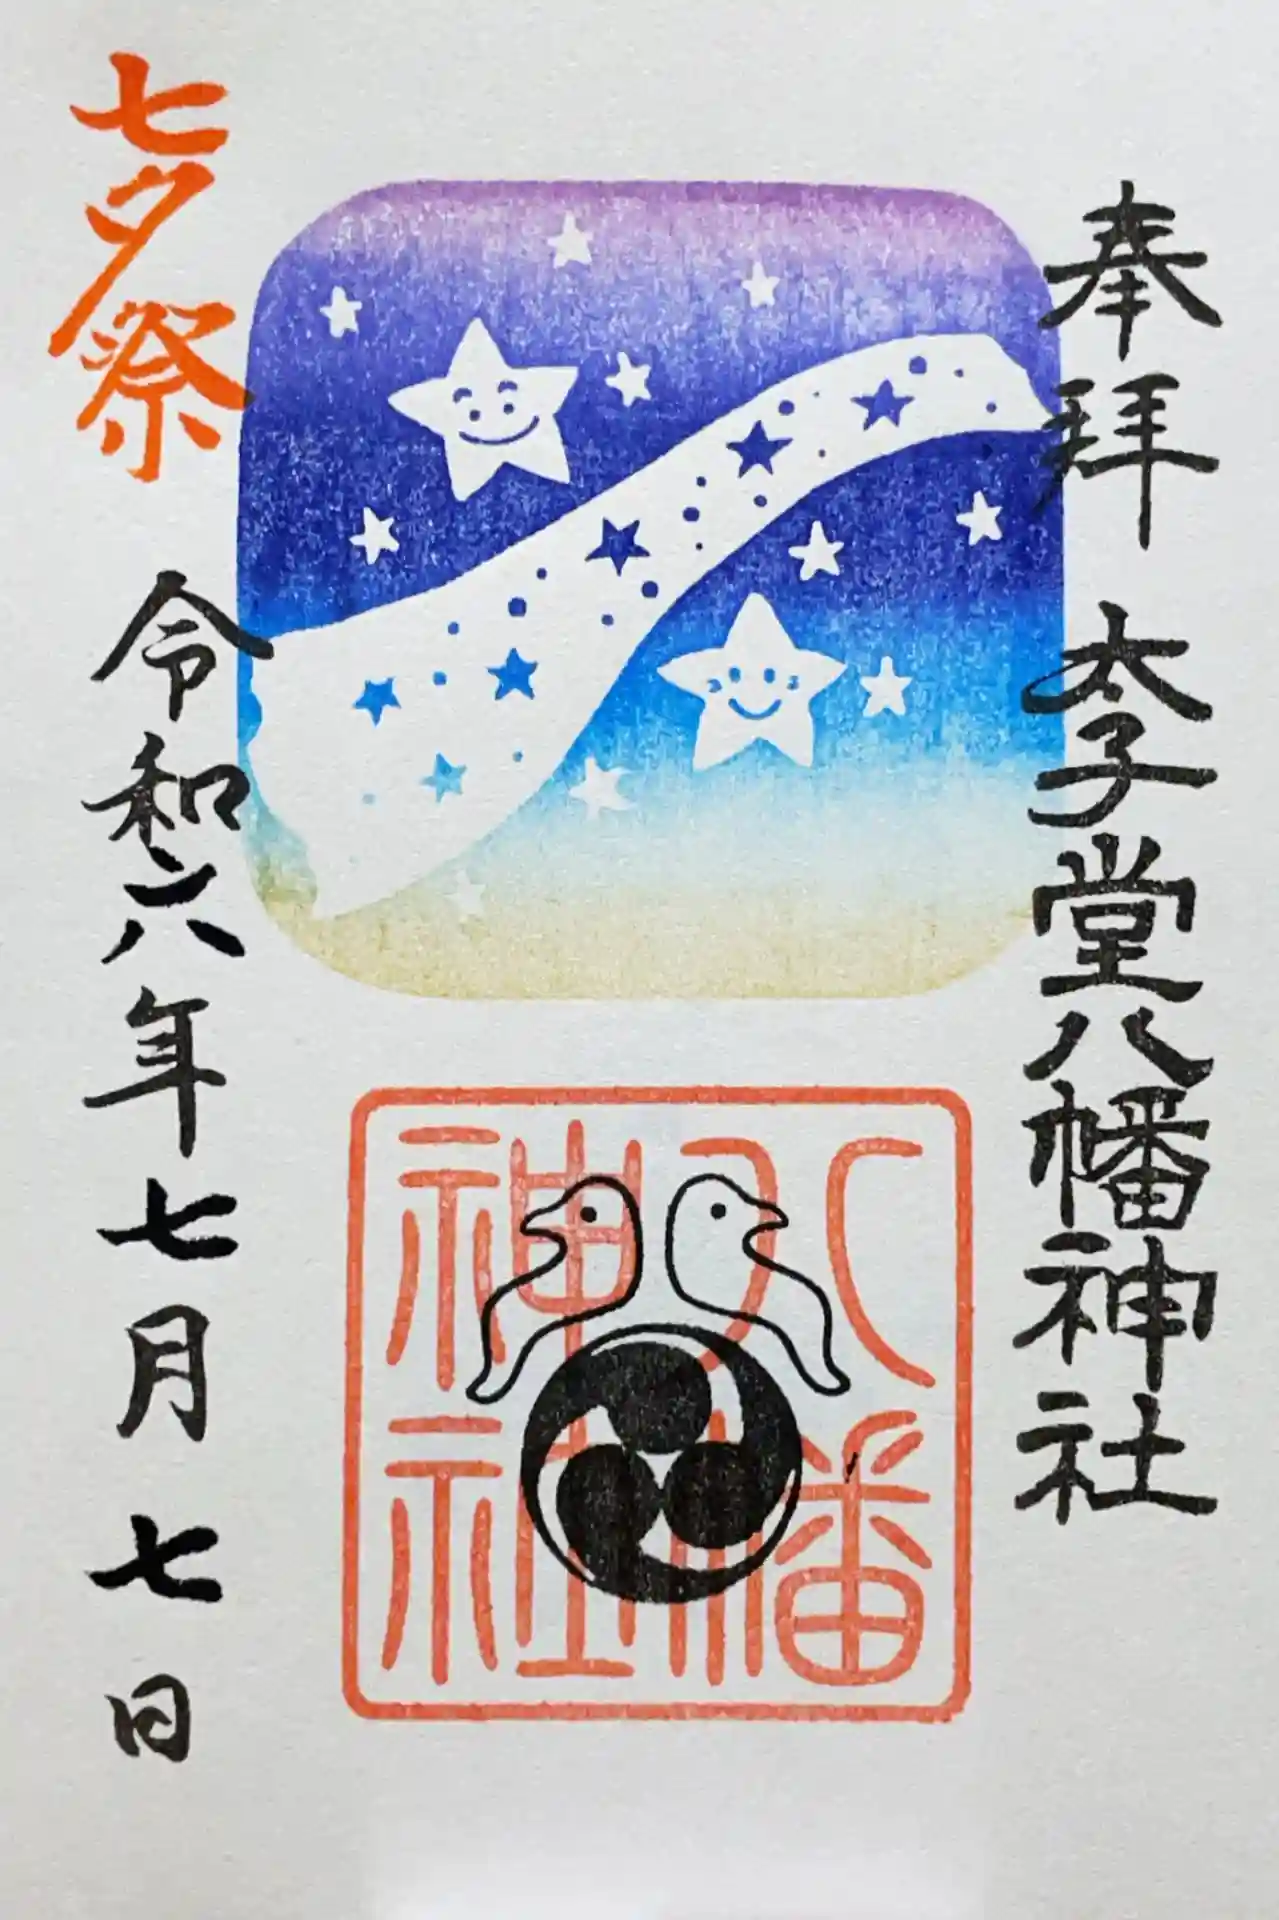 奉拝 太子堂八幡神社
八幡
神社
七夕祭
令和六年七月七日